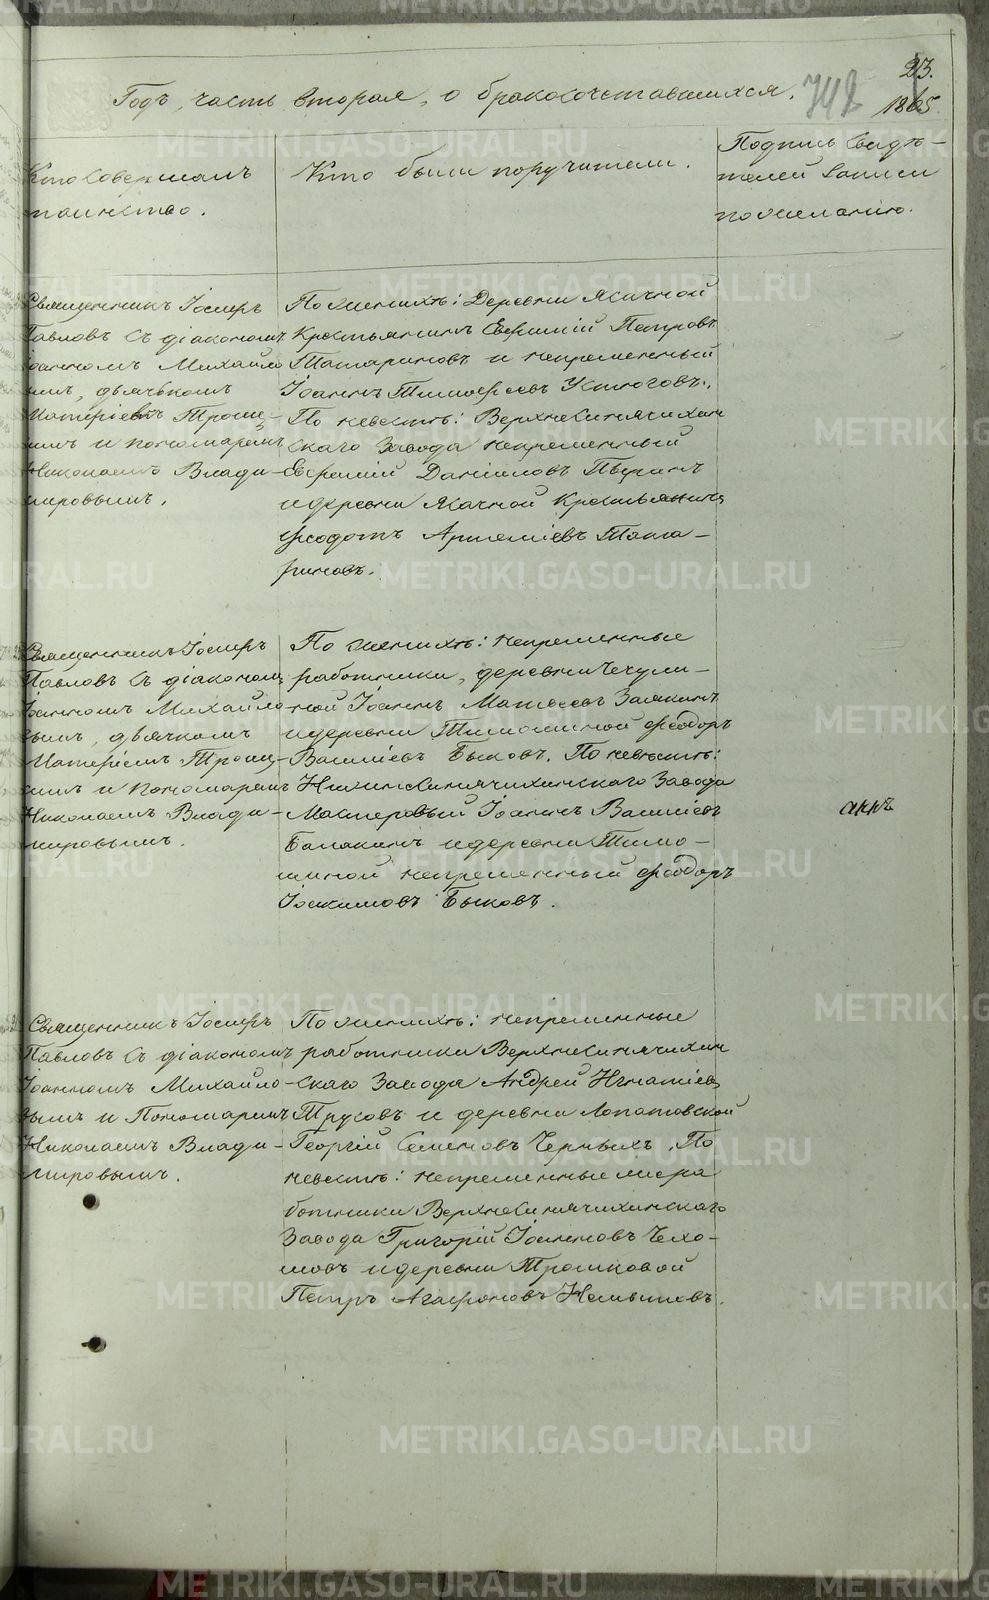 Годъ, часть вторая, о бракосочетавшихся.
742
23.
1865
Кто совершалъ
таинство.
Кто были поручители.
Подпись свидѣ-
телей записи
по желанію.
Священникъ Іосифъ
Павловъ съ діакономъ
Іоанномъ Михайло
вымъ, дьячкомъ
Троиц-
имъ и пономаремъ
Николаемъ Влади-
мировымъ.
По женихѣ: Деревни Ясачной
Крестьянинъ Евфимій Петровъ
Татариновъ и непременный
Іоаннъ Тимофеевъ Устюговъ.
По невестѣ: Верхнесинячихин
скаго Завода непременный
Евфимій Даніиловъ
и деревни Ясачной Крестьянинъ
Феодотъ Артеміевъ Тата-
риновъ.
Священникъ Іосифъ
Павловъ съ діакономъ
Іоанномъ Михайло
вымъ, дьячкомъ
Троиц-
имъ и пономаремъ
Николаемъ Влади-
мировымъ.
По женихѣ: непременные
работники, деревни Чечули-
ной Іоаннъ Матвеевъ Заякинъ
и деревни Тимошиной Феодоръ
Василіевъ Быковъ. По невѣстѣ:
Нижнесинячихинскаго Завода
Мастеровый Іоаннъ Василіевъ
Балакинъ и деревни Тимо-
шиной непременный Феодоръ
Іоакимовъ Быковъ.
Священникъ Іосифъ
Павловъ съ діакономъ
Іоанномъ Михайло
вымъ и Пономаремъ
Николаемъ Влади-
мировымъ.
По женихѣ: непременные
работники Верхнесинячихин
скаго Завода Андрей Игнатіевъ
Трусовъ и деревни Лопатовской
Георгій Семеновъ Черныхъ. По
невестѣ: непременные же ра
ботники Верхнесинячихинскаго
Завода Григорій Іоанновъ Чехо-
мовъ и деревни Трошковой
Петръ Агафоновъ
METRIKI.GASO-URAL.RU